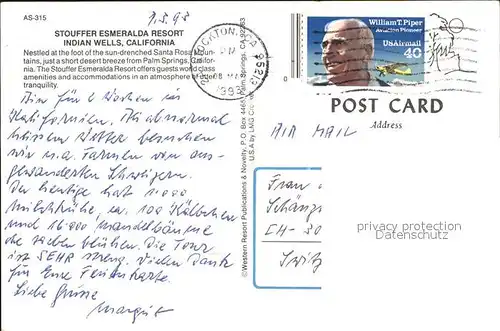 AS-315
7.3.93
STOUFFER ESMERALDA RESORT
INDIAN WELLS, CALIFORNIA
Nestled at the foot of the sun-drenched Santa Rosa Mountains, just a short desert breeze from Palm Springs, California. The Stouffer Esmeralda Resort offers guests world class amenities and accommodations in an atmosphere of
tranquility.
Bin für 6 Wochen in
Kalifornien. Bei abnormal
Wetter besuchen
wir u.a. Farmen von aus-
gewanderten Schweizern.
Der heutige hat 1.000
Milchkühe, ca. 100 Kälbchen
und 16.000 Mandelbäume
die soeben blühen. Die Tour
ist SEHR streng. Vielen Dank
für Eure Ferienkarte.
Liebe Grüsse
Margrit
©Western Resort Publications & Novelty, P.O. Box 4465, Palm Springs, CA 92263
U.S.A by LMG
STOCKTON, CA
952
PM
1993
William T. Piper
Aviation Pioneer
US Airmail
40
POST CARD
Address
AIR MAIL
Frau
CH-30
privacy protection
www.